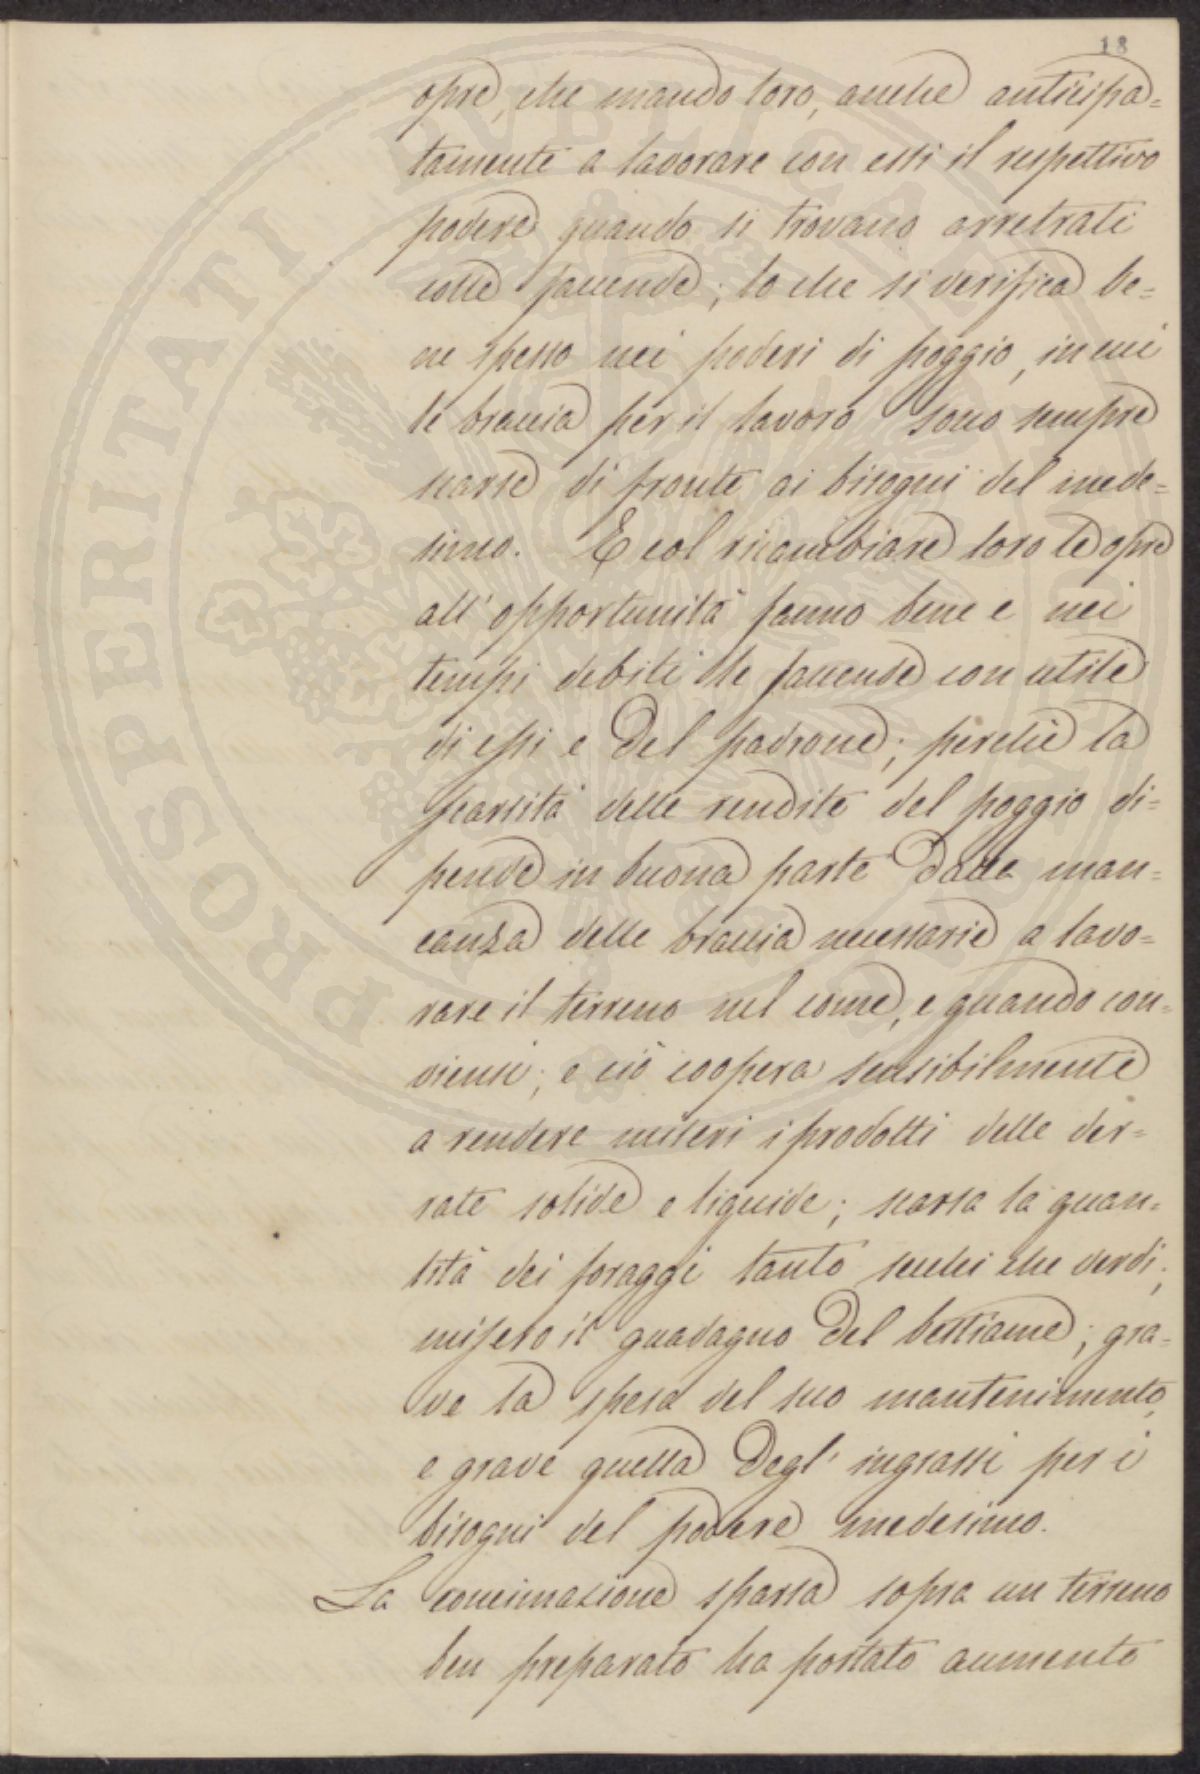 18
opre, che mando loro, anche anticipa=
tamente a lavorare con essi il respettivo
podere quando si trovano arretrati
colle faccende; lo che si verifica be=
ne spesso nei poderi di poggio, in cui
le braccia per il lavoro sono sempre
scarse di fronte ai bisogni del mede=
simo. E col ricambiare loro le opre
all'opportunità fanno bene e nei
tempi debiti le faccende con utile
di essi e del padrone; perchè la
scarsità delle rendite del poggio di=
pende in buona parte dalla man=
canza delle braccia necessarie a lavo=
rare il terreno nel come, e quando con=
viensi; e ciò coopera sensibilmente
a rendere miseri i prodotti delle der=
rate solide e liquide; scarsa la quan=
tità dei foraggi tanto secchi che verdi;
misero il guadagno del bestiame; gra=
ve la spesa del suo mantenimento,
e grave quella degl'ingrassi per i
bisogni del podere medesimo.
La concimazione sparsa sopra un terreno
ben preparato ha portato aumento
PROSPERITATI PVBLICAE